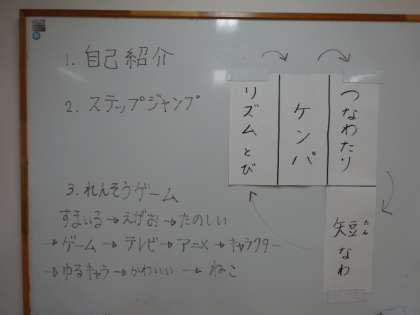 1. 自己紹介
2. ステップジャンプ
リズムとび
ケンパ
つなわたり
短なわ
たん
3. れんそうゲーム
すまいる→えがお→たのしい
→ゲーム→テレビ→アニメ→キャラクター
→ゆるキャラ→かわいい→ねこ